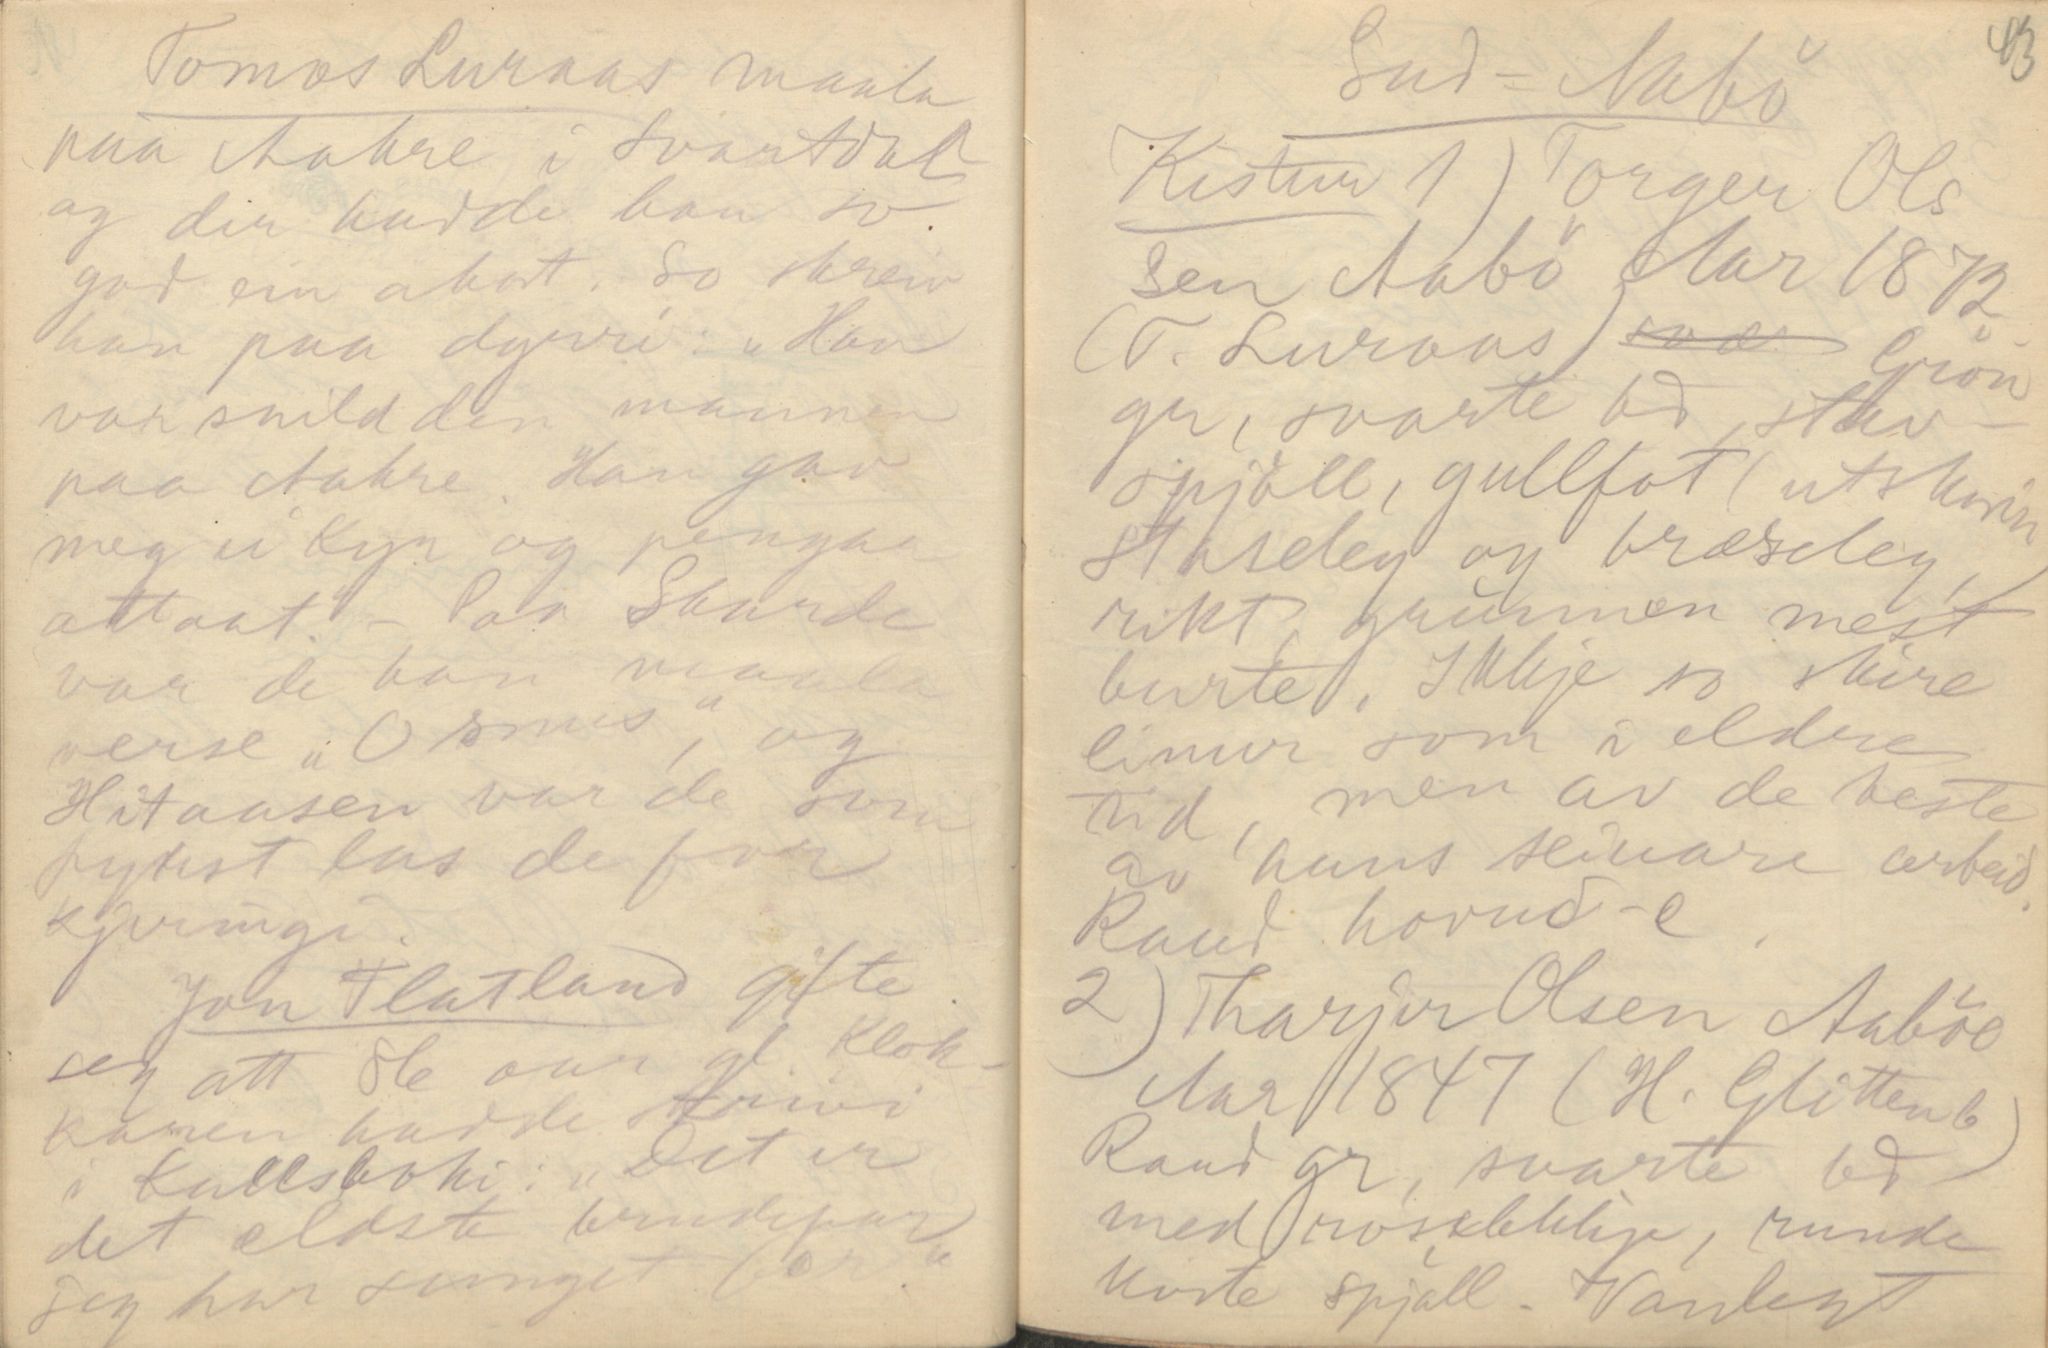 Tomos Luraas maala
paa Aakre i Svartdal
og der hadde han so
god ein akort. So skreiv
han paa dynni: "Han
var snild den mannen
paa Aakre. Han gav
meg ei kyr og pengaa
attaat." - Paa Skarde
var de han maala
verse "Osmus", og
Hitaasen var de som
fyrst las de for
kjeringi.
Jon Flatland gifte
seg att 86 aar gl. Klok-
karen hadde skrivi
i kallsboki: "Det er
det eldste brudepar
jeg har sunget for."
43
Sud-Aabö
Kistur 1) Torger Ols
sen Aabö Aar 1872
(T. Luraas) Grön
gr, svarte bd, skuv-
spjöll, gullfot (utskorin
staseleg og bræseleg,
rikt, grunnen mest
burte. Ikkje so skire
linur som i eldre
tid, men av de beste
av hans seinare arbeid.
Raud hovud-e.
2) Tharjer Olsen Aaböe
Aar 1847 (H. Glittenb)
Raud gr, svarte bd
med rosekkje, runde
kvite spjöll. Vanlegt